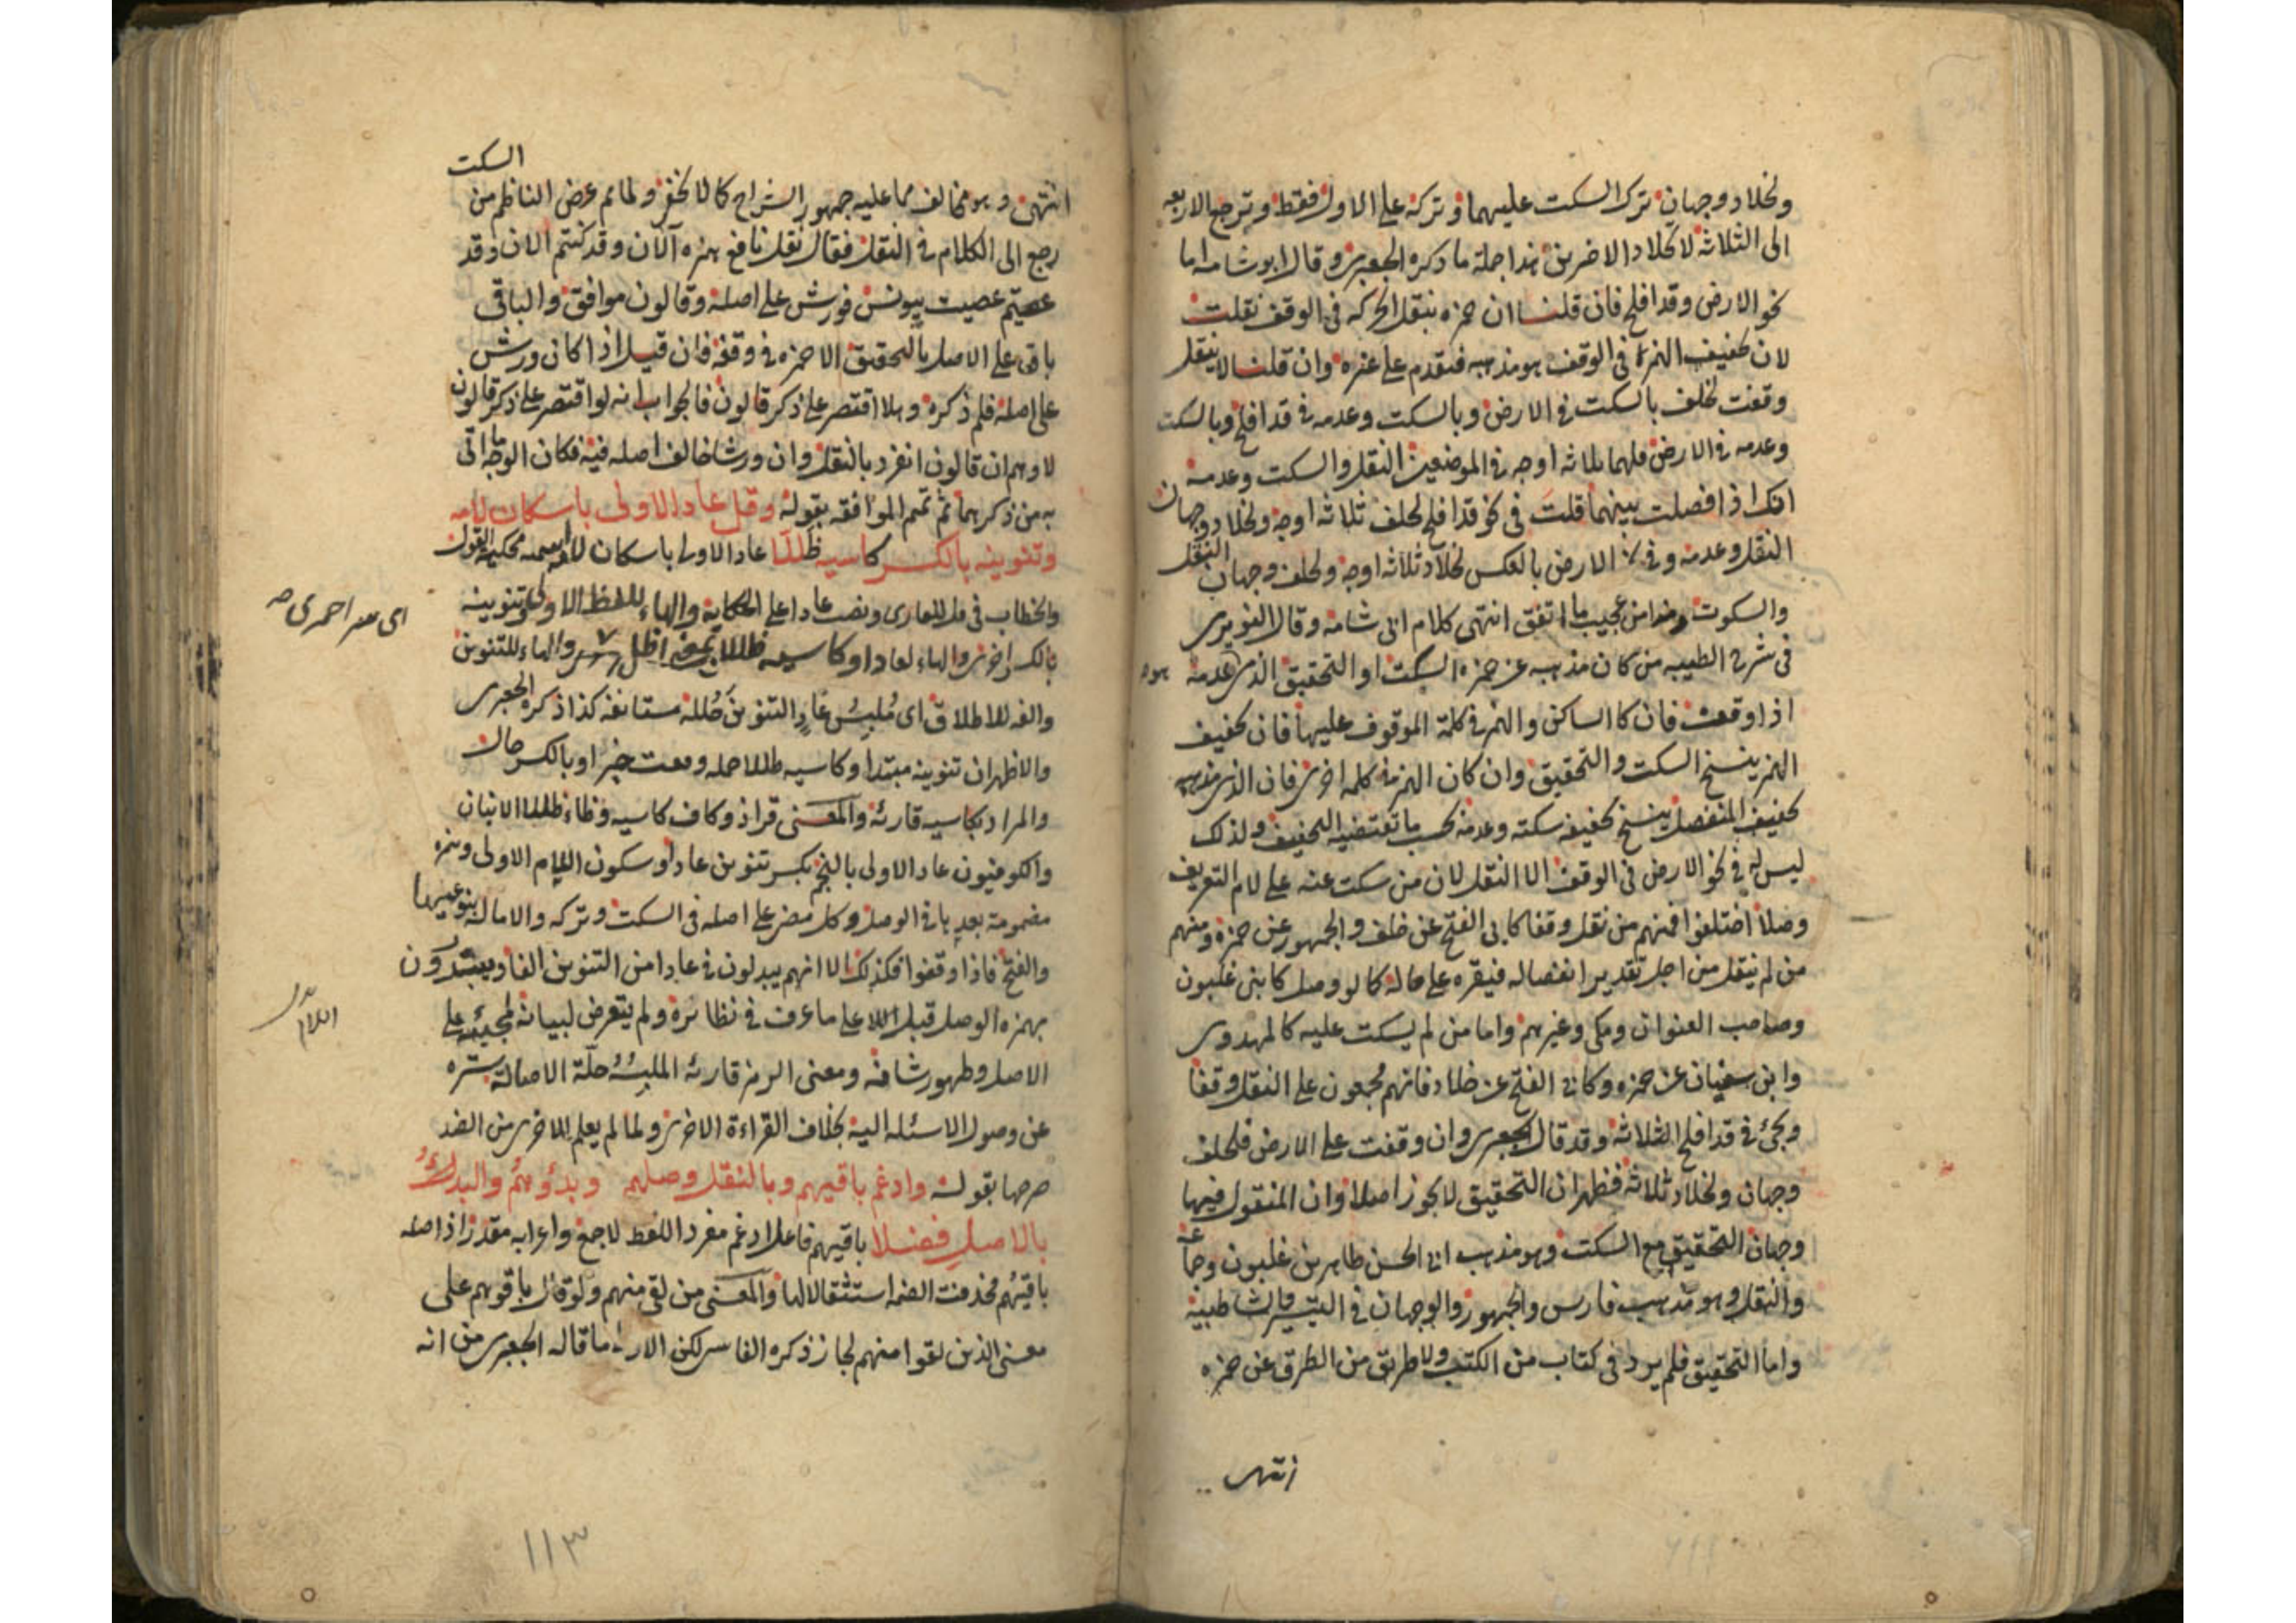 ولخلاد وجهان ترك السكت عليهما وتركه على الاول فقط وترجع الاربعة
الى الثلاثة لا لخلاد الاخرين هذا جملة ما ذكره الجعبرى وقال ابو شامه اما
نحو الارض وقد افلح فان قلنا ان حمزه ينقل الحركه فى الوقف نقلت
لان تخفيف الهمزة فى الوقف هو مذهبه فيقدم على غيره وان قلنا لا ينقل
وقفت لخلف بالسكت فى الارض وبالسكت وعدمه فى قد افلح وبالسكت
وعدمه فى الارض فلهما ثلاثه اوجه فى الموضعين النقل والسكت وعدمه
افكا اذا فصلت بينهما قلت فى نحو قد افلح لخلف ثلاثه اوجه ولخلاد وجهان
النقل وعدمه وفى الارض بالعكس لخلاد ثلاثه اوجه ولخلف وجهان النقل
والسكوت وهذا من عجيب ما اتفق انتهى كلام ابى شامه وقال النويرى
فى شرح الطيبه من كان مذهبه عن حمزه السكت او التحقيق الذى هو عدمه
اذا وقف فان كا الساكن والهمز فى كلمة الموقوف عليها فان تخفيف
الهمز ينسخ السكت والتحقيق وان كان الهمز فى كلمه اخرى فان الذى مذهبه
تخفيف المنفصل ينسخ تخفيفه سكته وعدمه بحسب ما تقتضيه التخفيف ولذلك
ليس له فى نحو الارض فى الوقف الا النقل لان من سكت عنه على لام التعريف
وصلا اختلفوا فمنهم من نقل وقفا كابى الفتح عن خلف والجمهور عن حمزه ومنهم
من لم ينقل من اجل تقدير انفصاله فيقره على حاله كما لو وصل كابنى غلبون
وصاحب العنوان ومكى وغيرهم واما من لم يسكت عليه كالمهدوى
وابن سفيان عن حمزه وكابى الفتح عن خلاد فانهم مجمعون على النقل وقفا
ويجئ فى قد افلح الثلاثه وقد قال الجعبرى وان وقفت على الارض فلخلف
وجهان ولخلاد ثلاثه فظهر ان التحقيق لا يجوز اصلا وان المنقول فيها
وجهان التحقيق مع السكت وهو مذهب ابى الحسن طاهر بن غلبون
والنقل وهو مذهب فارس والجمهور والوجهان فى التيسير والشاطبية
واما التحقيق فلم يرد فى كتاب من الكتب ولا طريق من الطرق عن حمزه
انتهى
السكت
انتهى وهو مخالف مما عليه جمهور الشراح كما لا يخفى ولما تم عرض الناظم من
رجع الى الكلام فى النقل فقال نقل نافع همزه آلان وقد كنتم الان وقد
عصيتم عصيت بيونس فورش على اصله وقالون موافق والباقى
باق على الاصل بالتحقيق الا حمزه فى وقفه فان قيل اذا كان ورش
على اصله فلم ذكره وهلا اقتصر على ذكر قالون فالجواب انه لو اقتصر على ذكر قالون
لاوهم ان قالون انفرد بالنقل وان ورشا خالف اصله فيه فكان الوجه ما اتى
به من ذكرهما ثم تمم الموافقه بقوله وقل عادا الاولى باسكان لامه
وتنوينه بالكسر كاسيه ظللا عادا الاولى باسكان
بالكسر اخرى والهاء لعادا وكاسيه ظللا والهاء للتنوين
والفه للاطلاق اى مُلبِسُ عادٍ التنوينَ حُلله مستانفه كذا ذكره الجعبرى
والاظهر ان تنوينه مبتدا وكاسيه
والمراد بكاسيه قارئه والمعنى قرا ذو كاف كاسيه وظاء ظللا الابنان
والكوفيون عادا الاولى بالنجم بكسر تنوين عادا وسكون اللام الاولى وهمزه
مضمومة بعدها فى الوصل وكل مضى على اصله فى السكت وتركه والامالة بنوعيها
والفتح فاذا وقفوا فكذلك الا انهم يبدلون فى عادا من التنوين الفا ويبتدؤن
بهمزه الوصل قبل على ما عرف فى نظائره ولم يتعرض لبيانه لمجيئه على
الاصل وظهور شانه ومعنى الرمز قارئه الملبِسُهُ حلّة الاصالة يستره
عن وصول الاسئله اليه بخلاف القراءة الاخرى ولما لم يعلم الاخرى من الضد
صرحها بقوله وادغم باقيهم وبالنقل وصلهم وبدؤهم والبدءُ
بالاصل فضلا باقيهم فاعل ادغم مفرد اللفظ لا جمع واعرابه مقدر اذ اصله
باقيُهُم فحذفت الضمه استثقالا لها والمعنى من بقى منهم ولو قال باقوهم على
معنى الذين بقوا منهم لجاز ذكره الفاسى لكن ما قاله الجعبرى من انه
١١٣